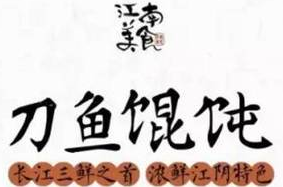 江南美食
刀鱼馄饨
长江三鲜之首 浓鲜江阴特色